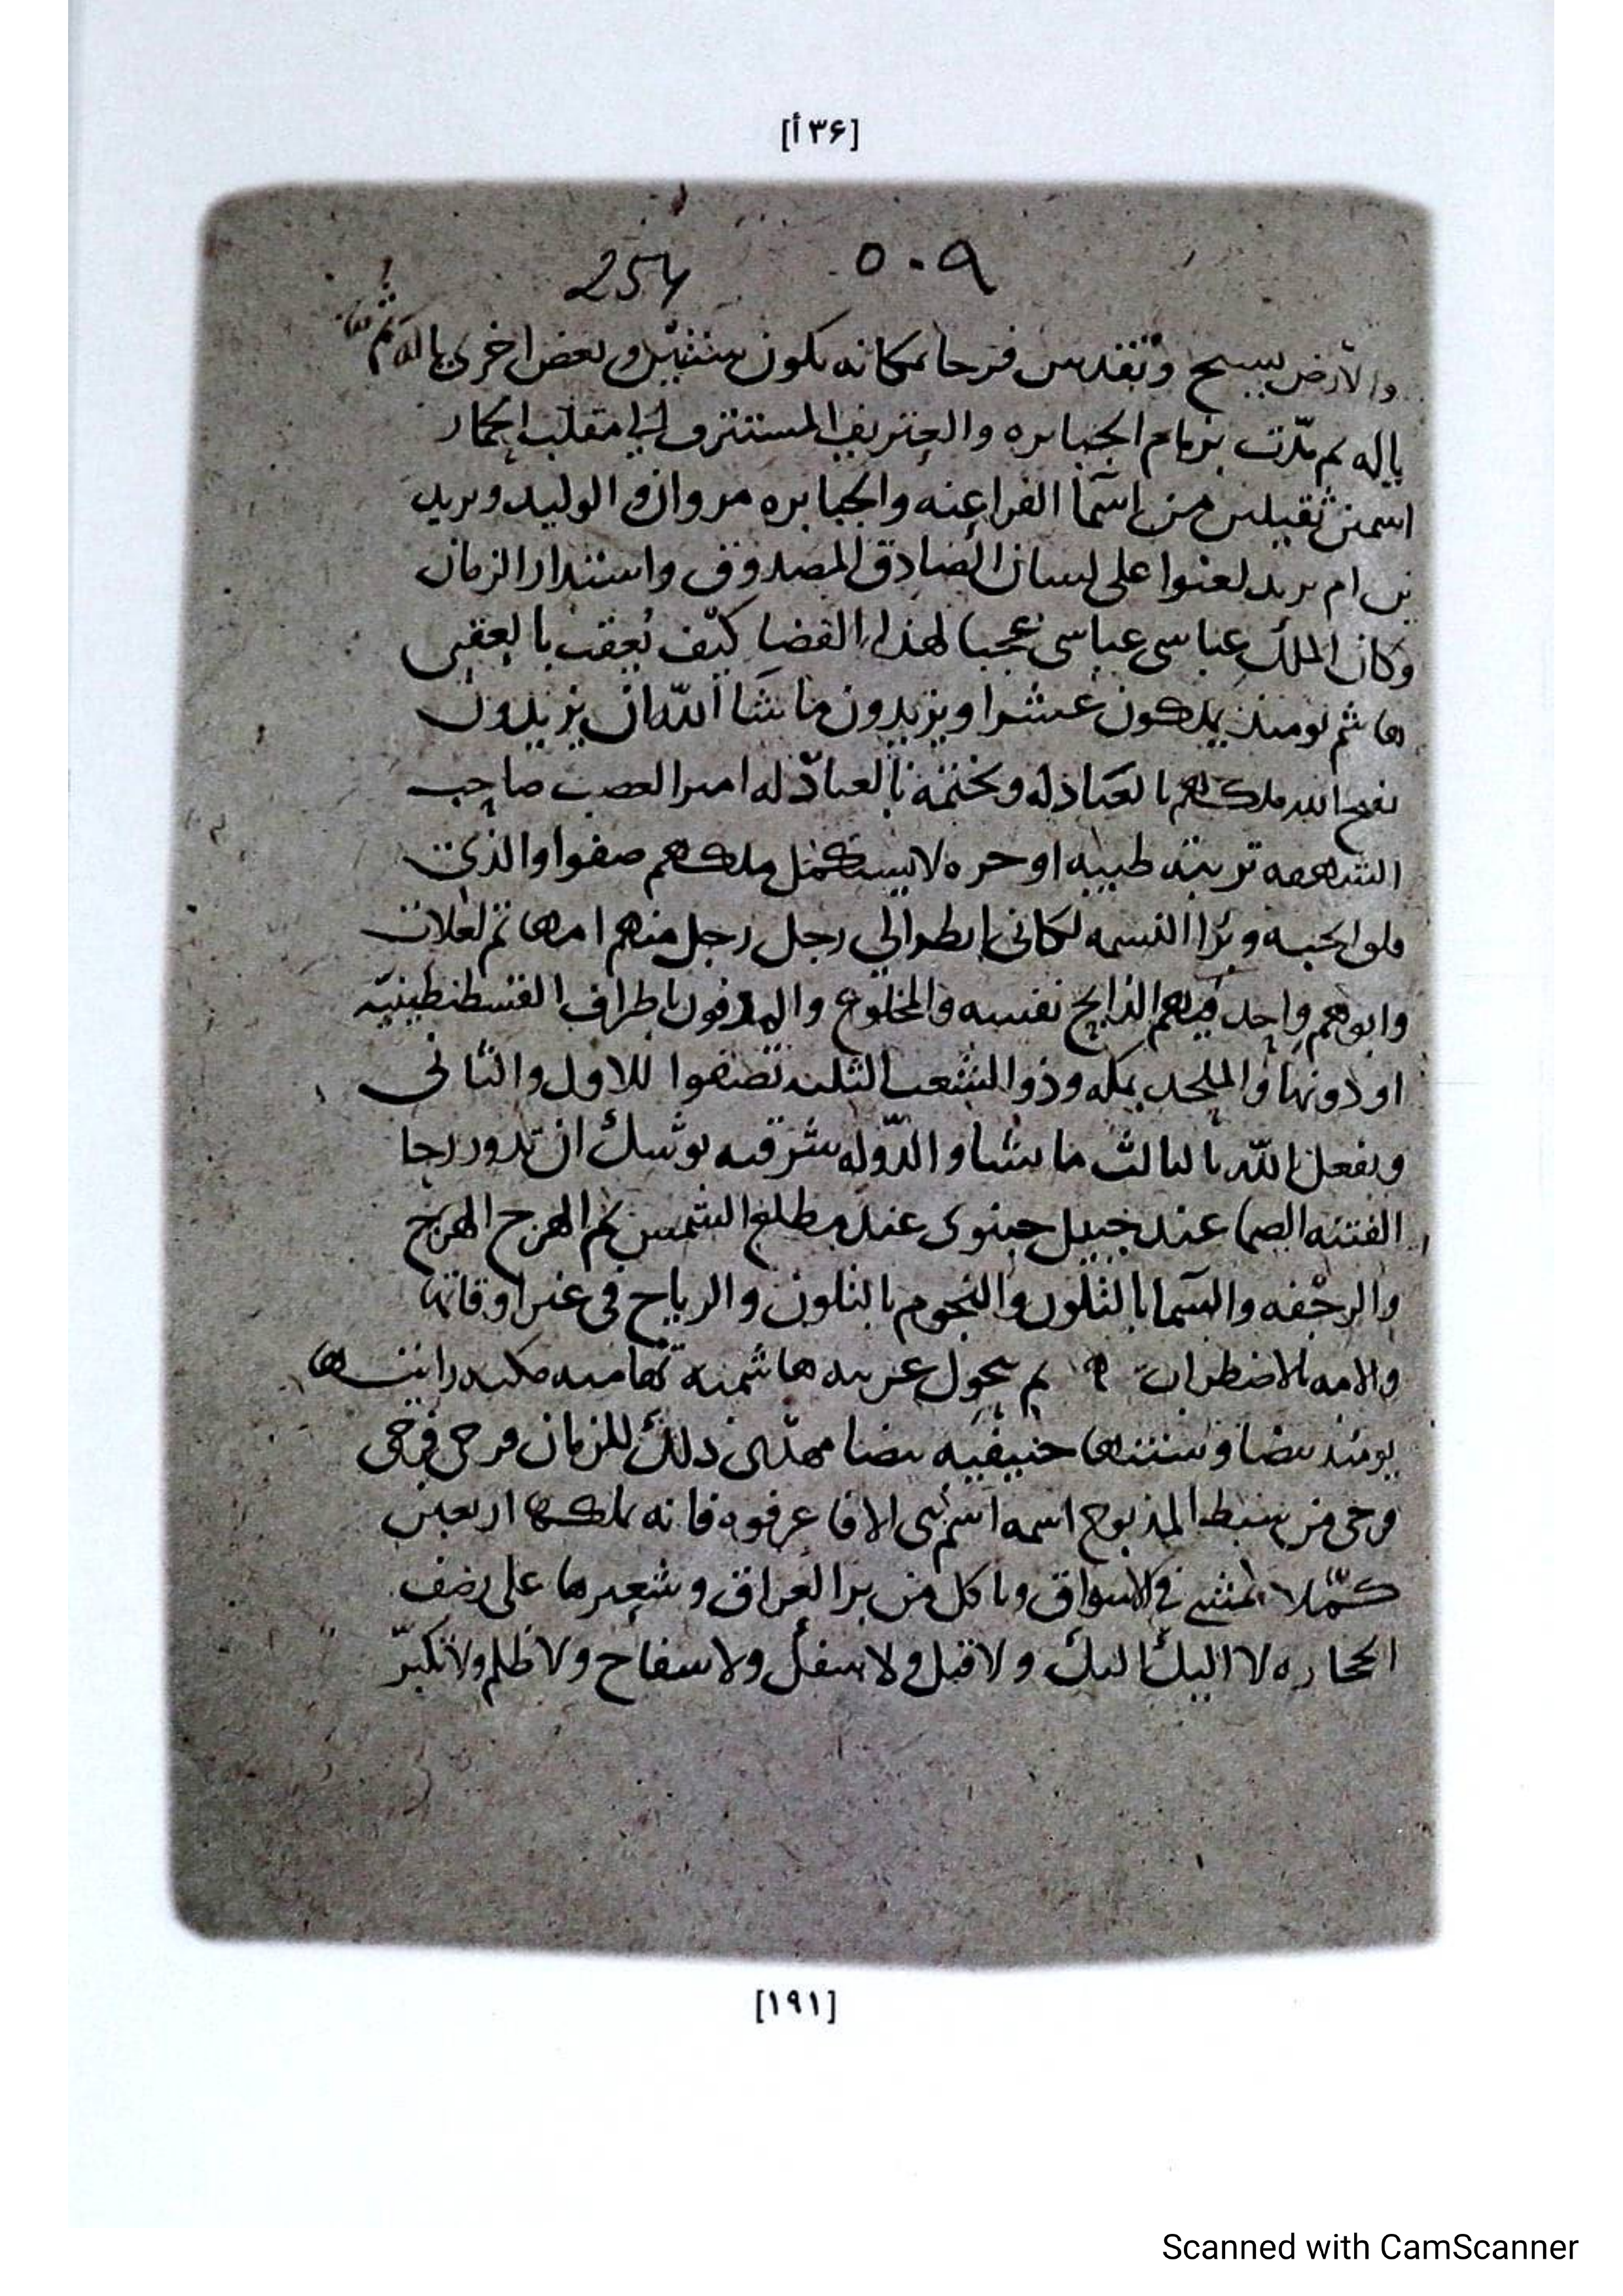 [٣۶ أ]
٥٠٩ 254
والارض يسبح وتقدس فرحا بمكانه يكون سنتين وبعض اخرى ياله ثم
ياله لم مدّت بزمام الجبابره والعتريف المستترف الى مقلب الحمار
اسمين ثقيلين من اسما الفراعنه والجبابره مروان والوليد ويريد
بن ام يريد لعنوا على لسان الصادق المصدوق واستدار الزمان
وكان الملك عباسى عباسى عجبا لهذا القضا كيف يعقب بالعقبى
ها شم يومئذ يملكون عشرا ويزيدون ما شا الله ان يزيدون
يفتح الله ملكهم بالعبادله ويختمه بالعبادله امير العصب صاحب
تربته طيبه او حره لا يستكمل ملكهم صفوا والذى
فلق الحبه وبرا النسمه لكانى انظر الى رجل رجل منهم امهاتهم لعلات
وابوهم واحد فيهم الذابح نفسه والمخلوع والمدفون باطراف القسطنطينيه
او دونها والملحد بمكه وذو الشعب الثلثه تصفوا للاول والثانى
ويفعل الله بالثالث ما يشا والدوله شرقيه يوشك ان تدور رحا
الفتنه الصما عند جبيل جبنوى عند مطلع الشمس ثم الهرج الهرج
والرجفه والسما بالتلون والنجوم بالتلون والرياح فى غير اوقاتها
والامه بالاضطراب ثم يحول عربيه هاشميه تهاميه مكيه رايتها
يومئذ بيضا وسنتها حنيفيه بيضا مهدى ذلك الزمان فرحى فرحى
فرحى من سبط المذبوح اسمه اسم نبى الا فاعرفوه فانه يملكها اربعين
كمّلا يمشى فى الاسواق وياكل من بر العراق وشعيرها على رضف
الحجاره لا اليك اليك ولا قتل ولا سفك ولا سفاح ولا ظلم ولا تكبّر
[١٩١]
Scanned with CamScanner